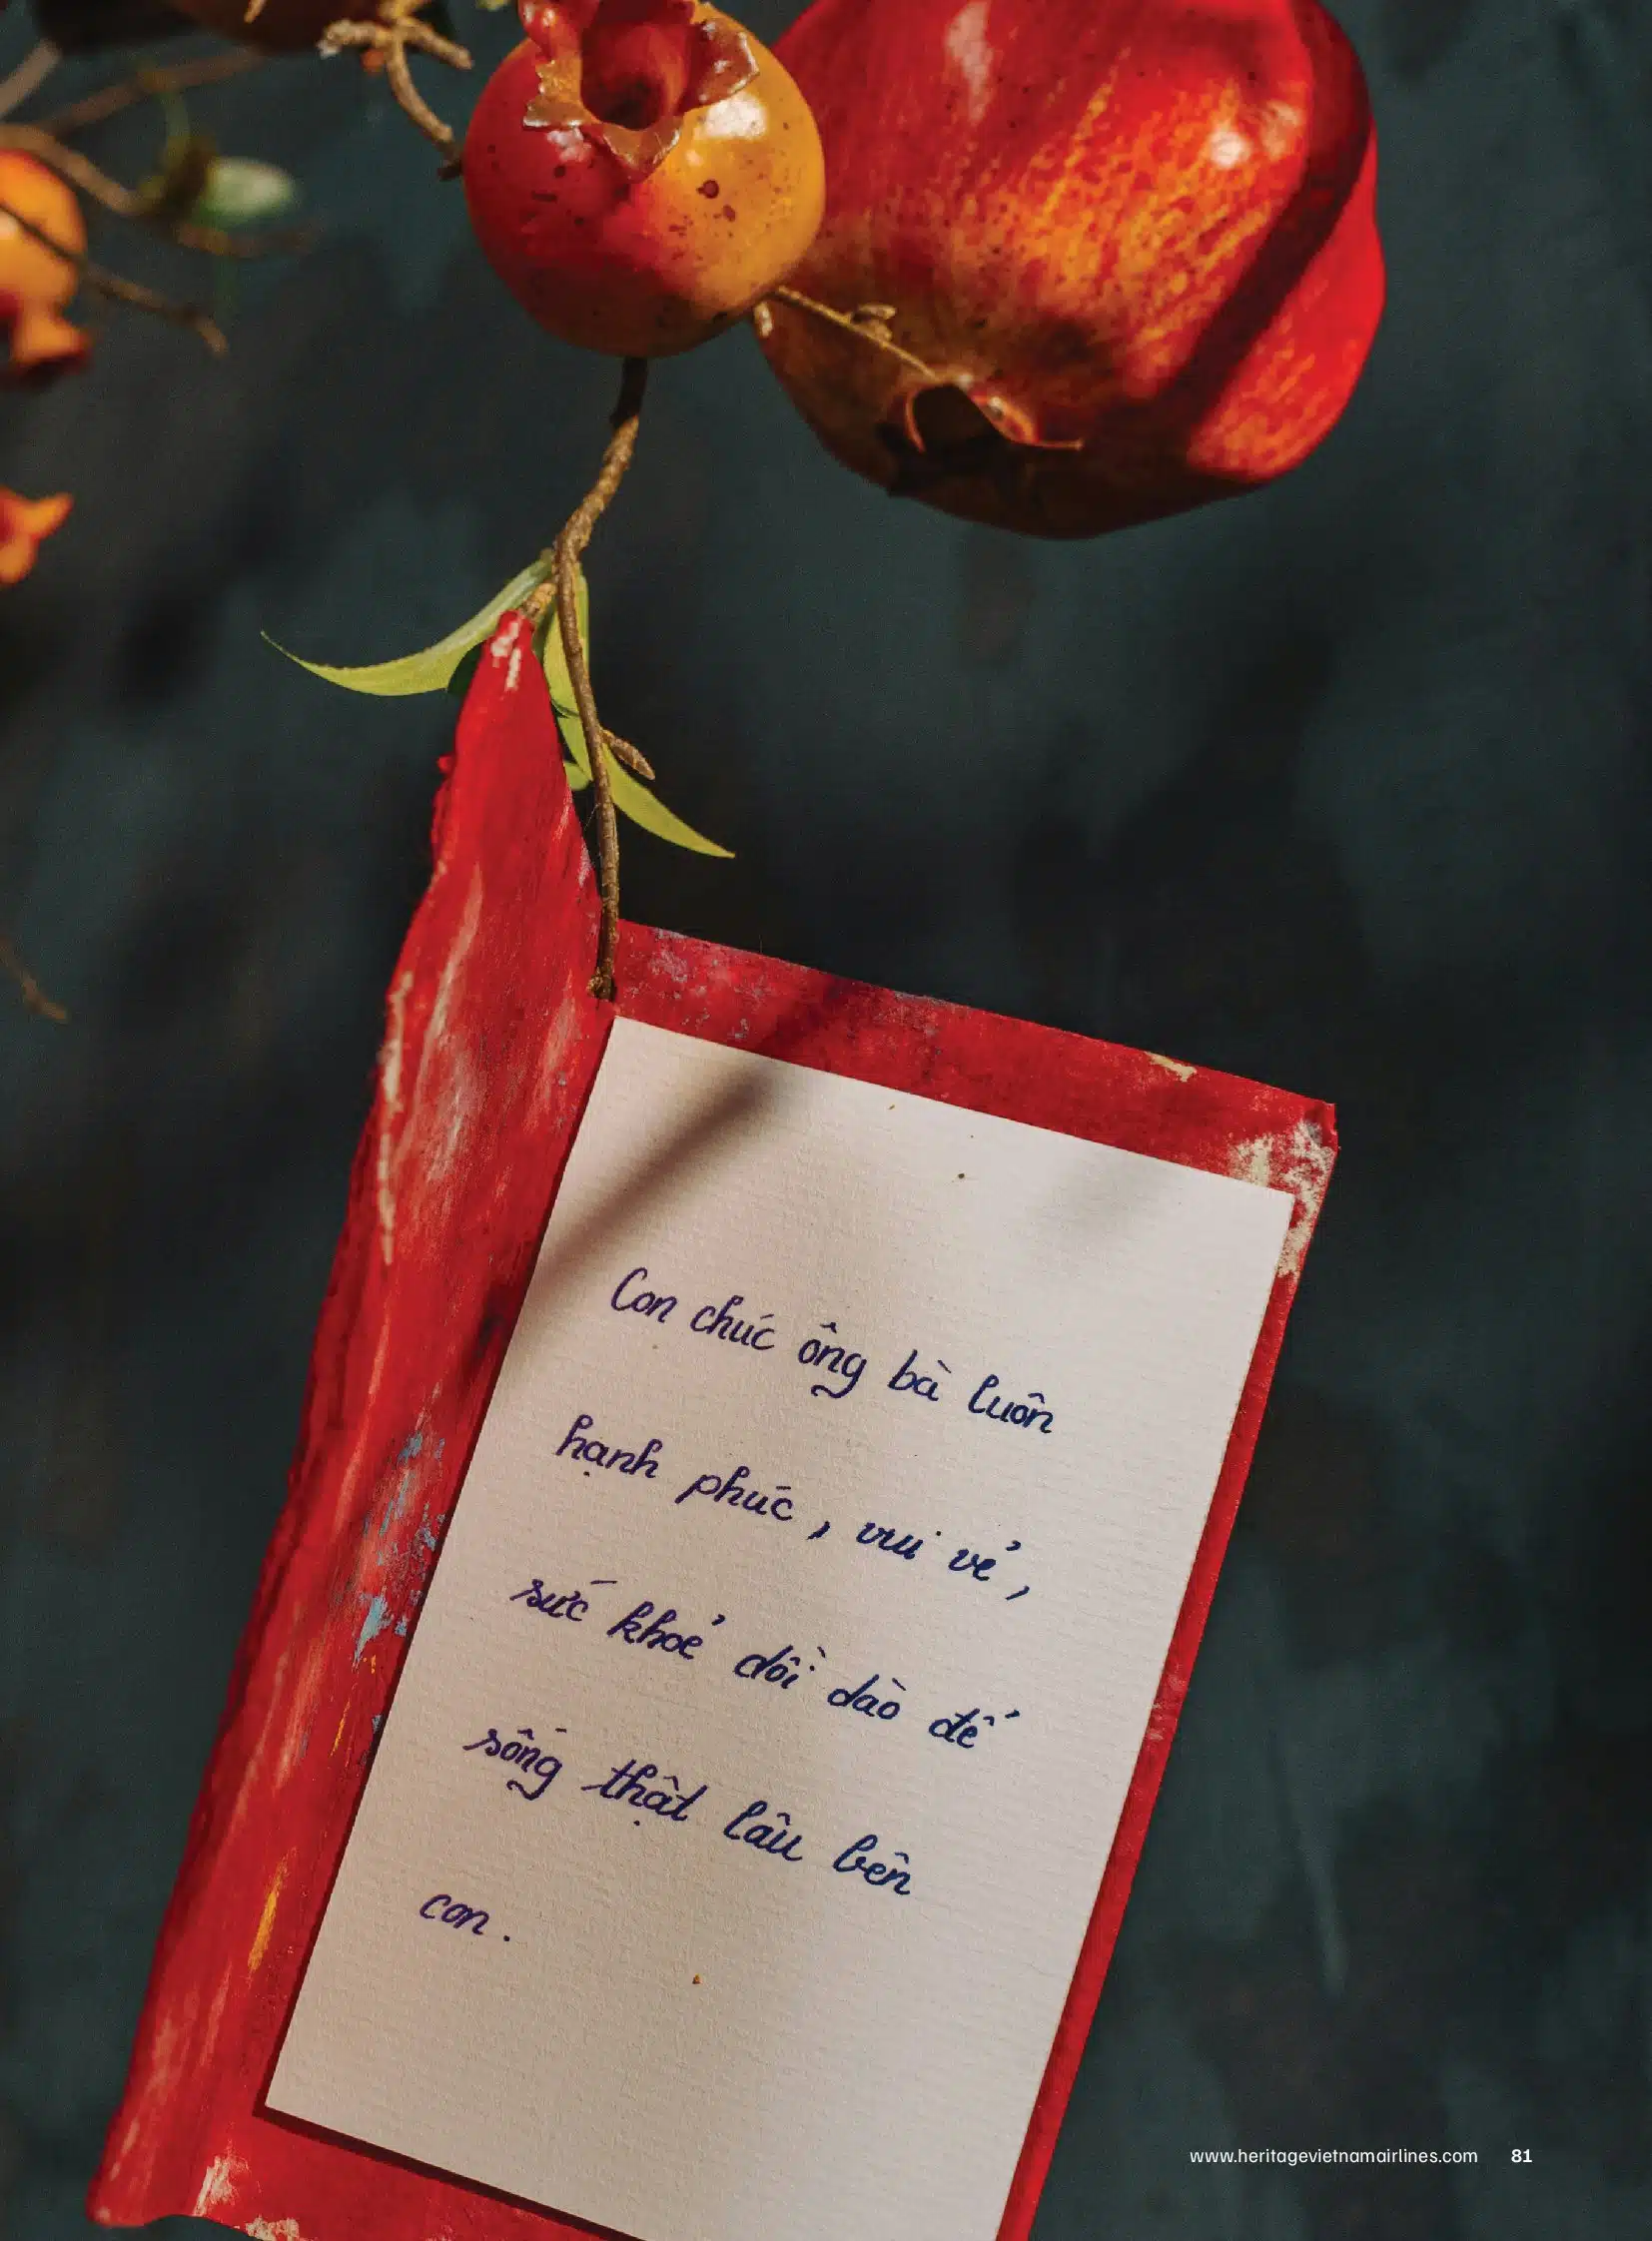 Con chúc ông bà luôn
hạnh phúc, vui vẻ,
sức khoẻ dồi dào để
sống thật lâu bên
con.
www.heritagevietnamairlines.com 81